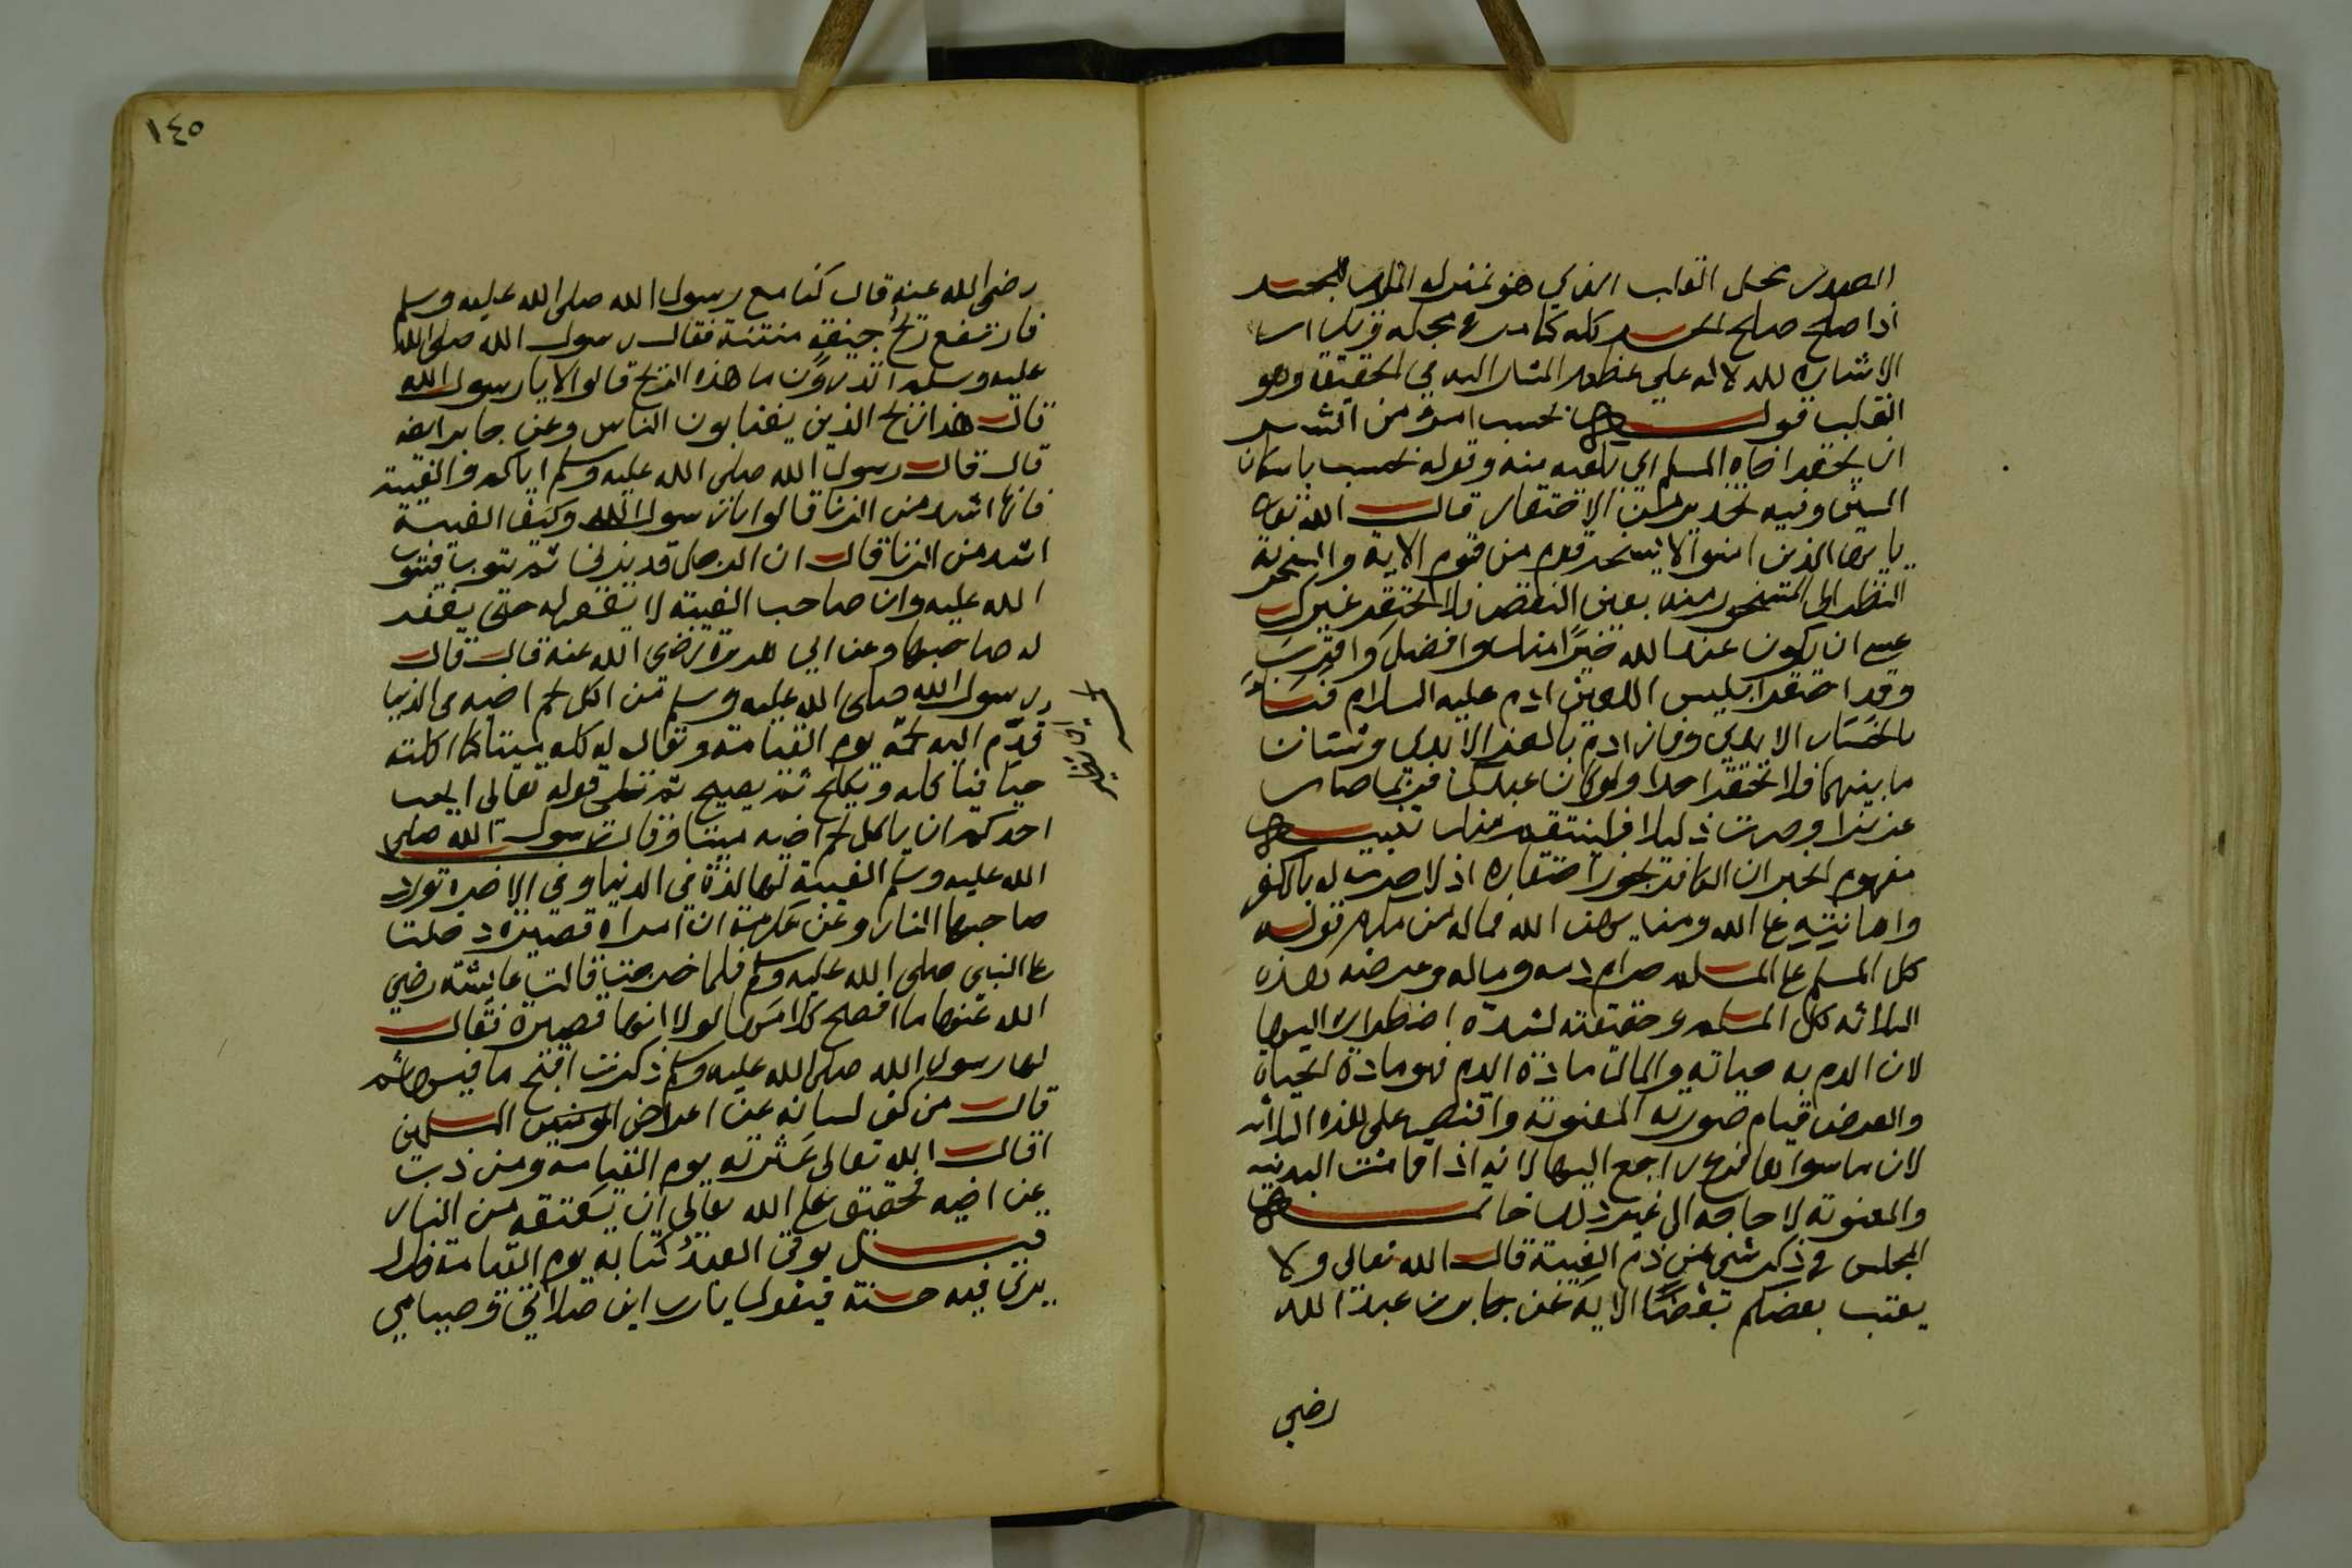 الصدور محل القلب الذي هو بمنزلة الملك للجسد
اذا صلح صلح الجسد كله كما مر في محله وتكرار
الاشارة للدلالة على عظم المشار اليه في الحقيقة وهو
القلب قوله بحسب امرء من الشر
ان يحقر اخاه المسلم اي يكفيه منه وقوله بحسب باسكان
السين وفيه تحذير من الاحتقار قال الله تعالى
يا ايها الذين امنوا لا يسخر قوم من قوم الاية والسخرية
النظر الى المسخور منه بعين النقص فلا تحتقر غيرك
عسى ان يكون عند الله خيرا منك وافضل واقرب
وقد احتقر ابليس اللعين ادم عليه السلام فباء
بالخسار الابدي وفاز ادم بالعز الابدي وشتان
ما بينهما فلا تحتقر احدا ولو كان عبدك فربما صار
عزيزا وصرت ذليلا فينتقم منك تنبيه
مفهوم الخبر ان الكافر يجوز احتقاره اذ لا حرمة له بالكفر
واهانته على الله ومن يهن الله فما له من مكرم قوله
كل المسلم على المسلم حرام دمه وماله وعرضه هذه
الثلاثة كل المسلم وحقيقته لشدة اضطراره اليها
لان الدم به حياته والمال مادة الدم فهو مادة الحياة
والعرض قيام صورته المعنوية واقتصر على هذه الثلاثة
لان ما سواها فرع راجع اليها لانه اذا قامت البدنية
والمعنوية لا حاجة الى غير ذلك خاتمة
المجلس في ذكر شيء من ذم الغيبة قال الله تعالى ولا
يغتب بعضكم بعضا الاية عن جابر بن عبد الله
رضي
١٤٥
رضي الله عنه قال كنا مع رسول الله صلى الله عليه وسلم
فارتفع ريح جيفة منتنة فقال رسول الله صلى الله
عليه وسلم اتدرون ما هذه الريح قالوا لا يا رسول الله
قال هذا ريح الذين يغتابون الناس وعن جابر ايضا
قال قال رسول الله صلى الله عليه وسلم اياكم والغيبة
فانها اشد من الزنا قالوا يا رسول الله وكيف الغيبة
اشد من الزنا قال ان الرجل قد يزني ثم يتوب فيتوب
الله عليه وان صاحب الغيبة لا يغفر له حتى يغفر
له صاحبها وعن ابي هريرة رضي الله عنه قال قال
رسول الله صلى الله عليه وسلم من اكل لحم اخيه في الدنيا
قدم اليه لحمه يوم القيامة ويقال له كله ميتا كما اكلته
حيا فياكله ويكلح ثم يصيح ثم تلى قوله تعالى ايحب
احدكم ان ياكل لحم اخيه ميتا وقال رسول الله صلى
الله عليه وسلم الغيبة لها لذة في الدنيا وفي الاخرة تورد
صاحبها النار وعن عكرمة ان امراة قصيرة دخلت
على النبي صلى الله عليه وسلم فلما خرجت قالت عايشة رضي
الله عنها ما افصح كلامها لولا انها قصيرة فقال
لها رسول الله صلى الله عليه وسلم ذكرت اقبح ما فيها ثم
قال من كف لسانه عن اعراض المسلمين
اقال الله تعالى عثرته يوم القيامة ومن ذب
عن اخيه فحقيق على الله تعالى ان يعتقه من النار
قيل يوتى العبد كتابه يوم القيامة فلا
يرى فيه حسنة فيقول يا رب اين صلاتي وصيامي